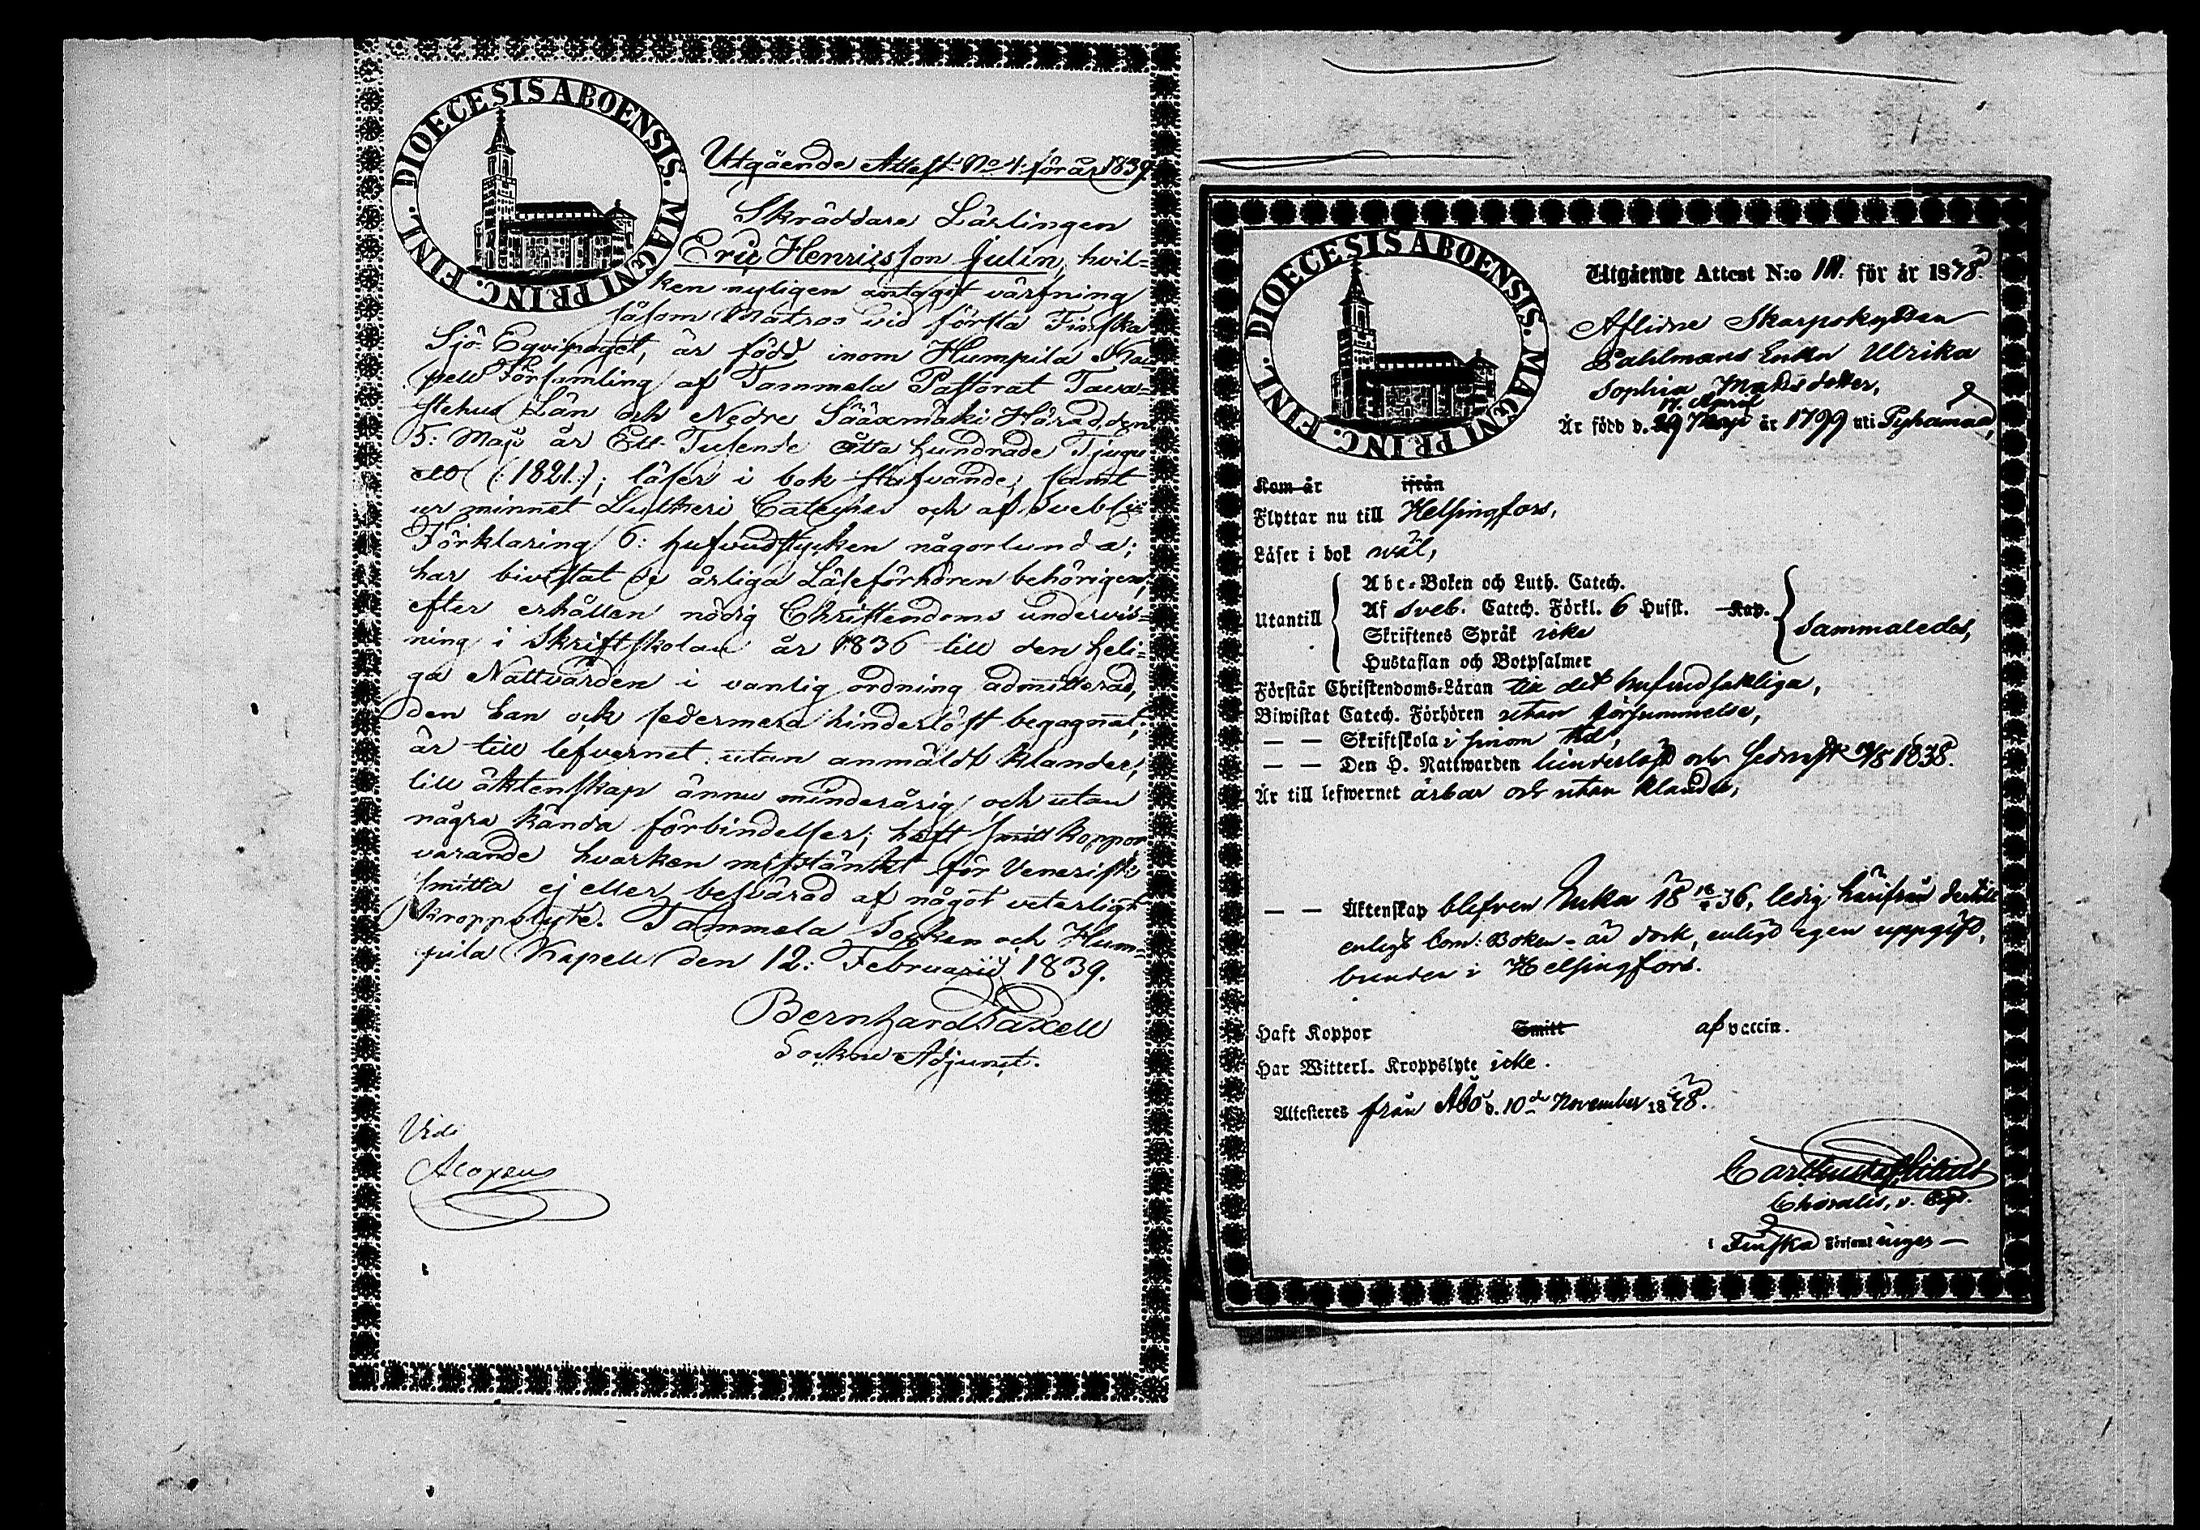 DIOECESIS ABOENSIS. MAGNI PRINC. FINL.
Utgående Attest No 4 för år 1839
Skräddare Lärlingen
Eric Henricsson Julin, hvil-
ken nyligen antagit värfning
såsom Matros vid första Finska
Sjö Eqvipaget, är född inom Humpila Ka-
pell Församling af Tammela Pastorat Tava-
stehus Län och Nedre Sääxmäki Härad, den
5: Maji år Ett Tusende Åtta hundrade Tjugu
ett (:1821:); läser i bok stafvande, samt
ur minnet Lutheri Cateches och af Svebelii
Förklaring 6: hufvudstycken någorlunda;
har bivistat de årliga Läseförhören behörigen,
efter erhållen nödig Christendoms undervis-
ning i Skriftskolan år 1836 till den heli-
ga Nattvarden i vanlig ordning admitterad,
den han ock sedermera hinderlöst begagnat;
är till lefvernet utan anmäldt klander,
till äktenskap ännu minderårig och utan
några kända förbindelser; haft Smitt koppor
varande hvarken misstänkt för Venerisk
smitta ej eller besvärad af något veterligt
Kroppslyte. Tammela Socken och Hum-
pila Kapell den 12: Februarii 1839.
Bernhard Paxell
Sockne Adjunct.
Vidi
Alopæus
DIOECESIS ABOENSIS. MAGNI PRINC. FINL.
Utgående Attest N:o 111. för år 1838.
Aflidne Skarpskytten
Dahlmans Enka Ulrika
Sophia Matsdotter,
17. April
Är född d. 29 Maji år 1799 uti Pyhämaa,
Kom år ifrån
Flyttar nu till Helsingfors,
Läser i bok wäl,
Abc-Boken och Luth. Catech.
Utantill Af Sveb. Catech. Förkl. 6 Hufst. Kap. sammaledes,
Skriftenes Språk icke
Hustaflan och Botpsalmer
Förstår Christendoms-Läran till det hufvudsakliga,
Biwistat Catech. Förhören utan försummelse,
— — Skriftskola i sinom tid,
— — Den H. Nattwarden hinderlöst och sednast 1838.
Är till lefwernet ärbar och utan klander,
— — Äktenskap blefven Enka 18 36, ledig härifrån dertill
enligt Com: Boken - är dock, enligt egen uppgift,
bunden i Helsingfors.
Haft Koppor Smitt af vaccin.
Har Witterl. Kroppslyte icke.
Attesteres från Åbo d. 10de November 1838.
Carl Gustaf
i Finska Församlingen —